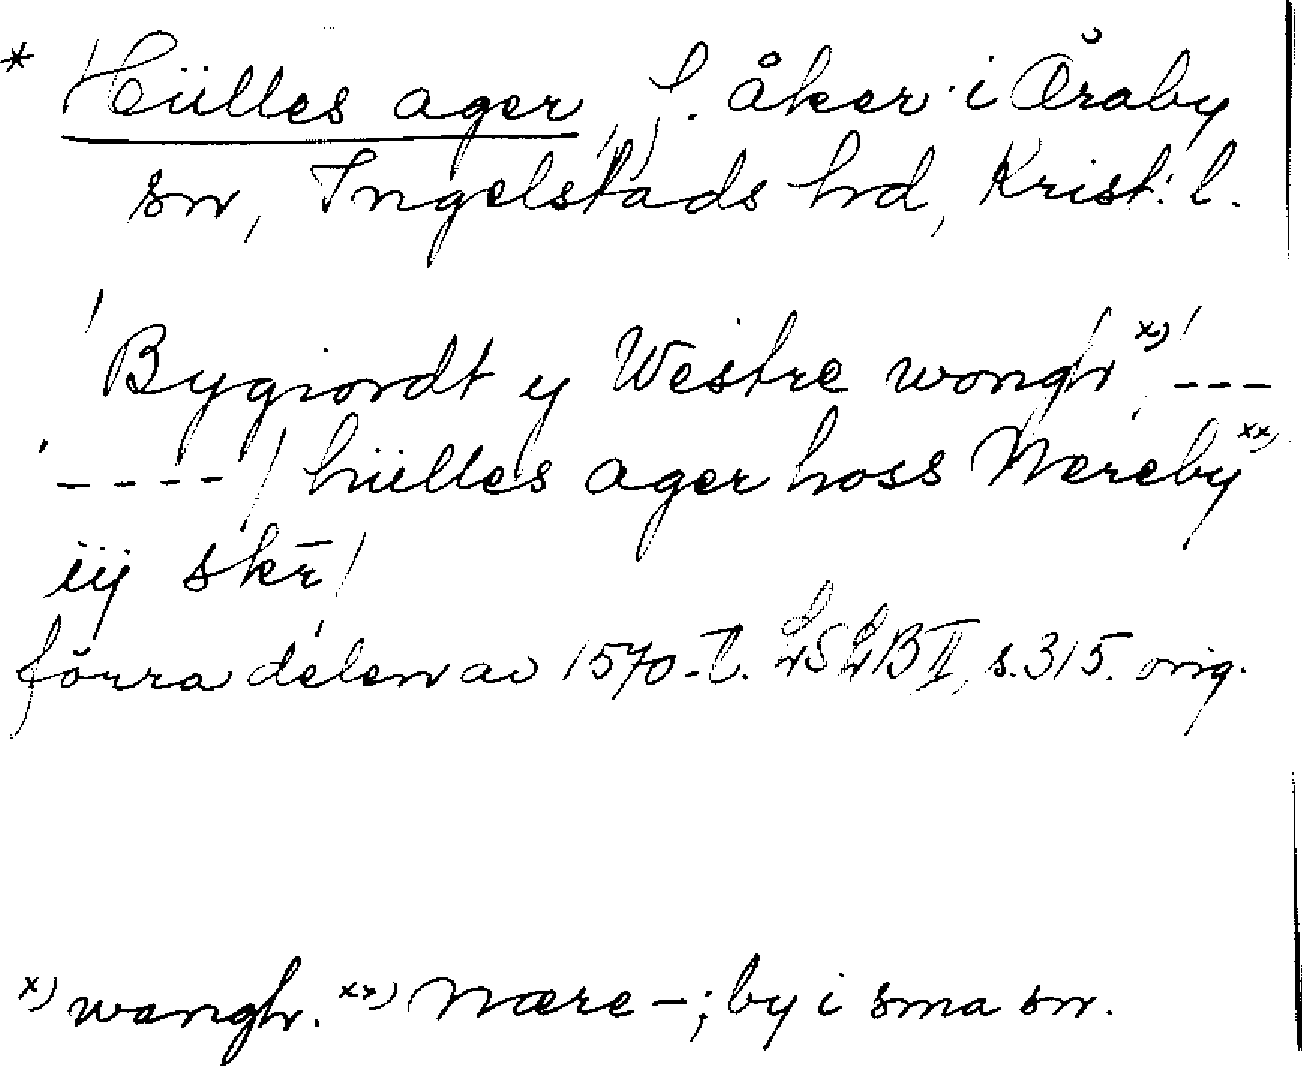 * Hülles ager, f. åker i Øraby
sn, Ingelstads hd, Krist. l.
Bygiordt y Westre wongh x) ---
---- / hülles ager hoss Næreby xx)
iij skr̄ /
förra delen av 1570-t. LSLB II, s. 315. orig.
x) wangh. xx) Nære-; by i sma sn.